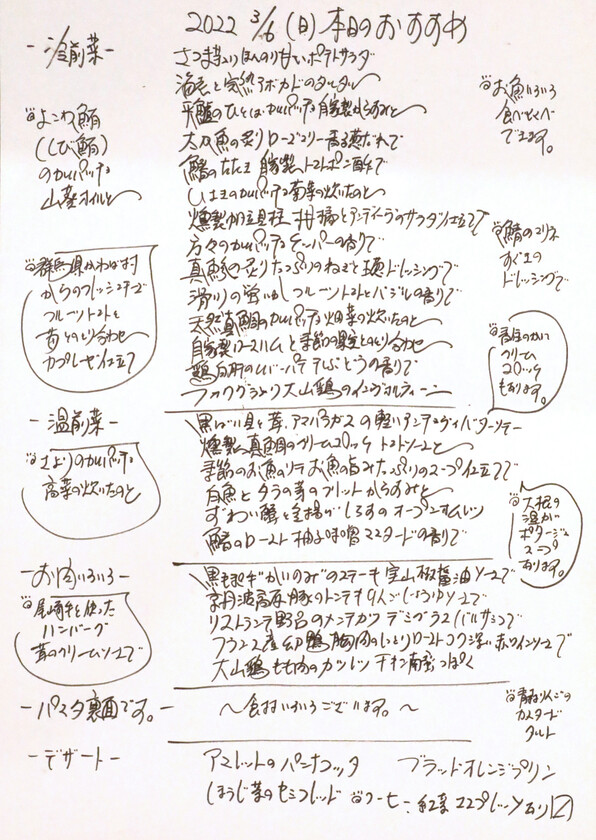 2022 3/6 (日) 本日のおすすめ
-冷前菜-
さつま芋のほんのり甘いポテトサラダ
海老と完熟アボカドのタルタル
平鱸のひとくちカルパッチョ 自家製からすみと
太刀魚の炙り ローズマリー香る葱だれで
鰆のたたき 自家製トマトポン酢で
真鯵の炙り たっぷりのねぎと 頭ドレッシングで
滑川の蛍いか フルーツトマトとバジルの香りで
天然真鯛のカルパッチョ 畑菜の炊いたのと
自家製ロースハムと季節の果実とのとり合わせ
鶏白肝のレバーパテ ぶどうの香りで
フォアグラと 大山鶏のインヴォルティーニ
よこわ鮪
(しび鮪)
のカルパッチョ
山葵オイルと
群馬県かわば村
からのフレッシュチーズ
フルーツトマトと
苺とのとり合わせ
カプレーゼ仕立て
お魚いろいろ
食べくらべ
できます。
鯖のマリネ
すぐきの
ドレッシングで
香住のかに
クリーム
コロッケ
もあります。
-温前菜-
黒ばい貝と茸、アスパラガスの軽いアンチョヴィバターソテー
燻製真鯛のクリームコロッケ トマトソースと
季節のお魚のソテー お魚の旨みたっぷりのスープ仕立てで
白魚とタラの芽のフリット からすみと
ずわい蟹と釜揚げしらすのオープンオムレツ
鰆のロースト 柚子味噌マスタードの香りで
さよりのカルパッチョ
高菜の炊いたのと
大根の
温かい
ポタージュ
スープ
あります。
-お肉いろいろ-
黒毛和牛"かいのみ"のステーキ 実山椒醤油ソースで
京丹波高原豚のトンテキ りんごしょうゆソースで
リストランテ野呂のメンチカツ デミグラス/バルサミコで
フランス産 幼鴨胸肉のしっとりロースト コク深い赤ワインソースで
大山鶏もも肉のカツレツ チキン南蛮っぽく
尾崎牛を使った
ハンバーグ
茸のクリームソースで
-パスタ裏面です。-
~食材いろいろございます。~
青りんごの
カスタード
タルト
-デザート-
アマレットのパンナコッタ ブラッドオレンジプリン
ほうじ茶のセミフレッド コーヒー、紅茶 エスプレッソあり〼